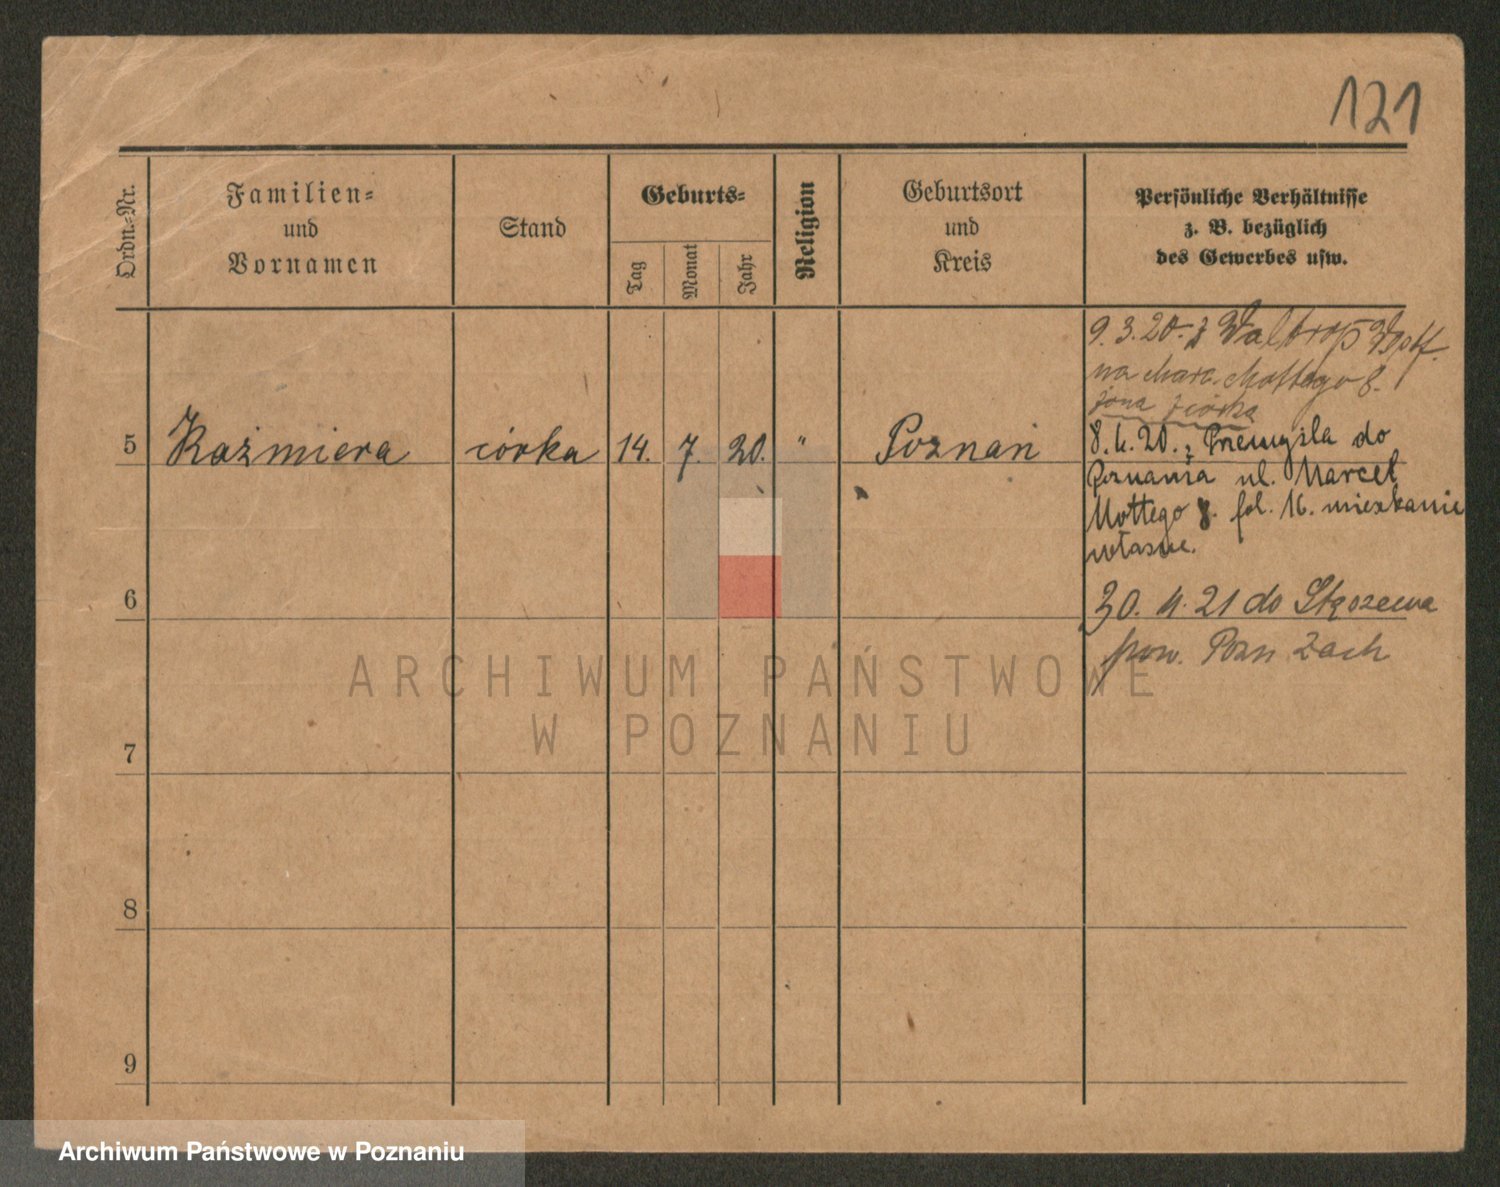 121
Ordn.-Nr.
Familien-
und
Vornamen
Stand
Geburts-
Tag
Monat
Jahr
Religion
Geburtsort
und
Kreis
Persönliche Verhältnisse
z. B. bezüglich
des Gewerbes usw.
9.3.20. z Waltrop
na Marc. Mottego 8.
żona i córka
5 Kaźmiera córka 14. 7. 20. " Poznań
8.4.20. z Przemyśla do
Poznania ul. Marcel
Mottego 8. fol. 16. mieszkanie
własne.
6
30. 4. 21 do
pow. Pozn Zach
7
8
9
ARCHIWUM PAŃSTWOWE
W POZNANIU
Archiwum Państwowe w Poznaniu